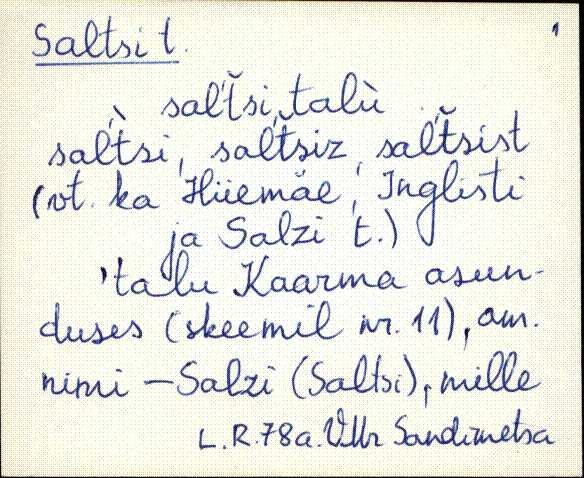 Saltsi t.
1
sal'tsi talù
sàl'tsi, sal'tsiz, sal'tsist
(vt. ka Hiiemäe, Inglisti
ja Salzi t.)
'talu Kaarma asun-
duses (skeemil nr. 11), am.
nimi – Salzi (Saltsi), mille
L.R. 78a. VMr Sandimetsa